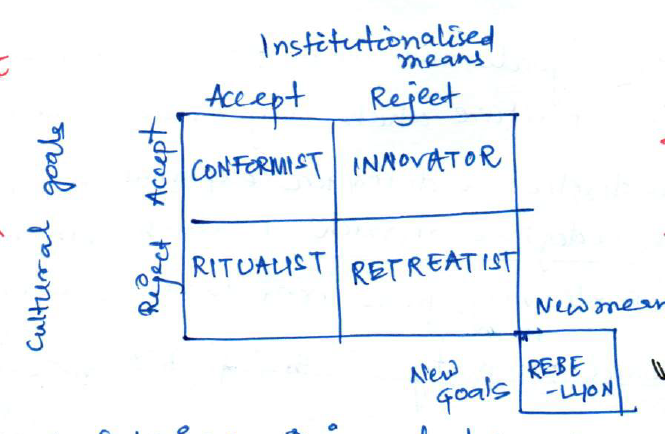 Institutionalised
means
Accept Reject
Cultural goals
Accept
CONFORMIST INNOVATOR
Reject
RITUALIST RETREATIST
New mean
New
Goals
REBE
-LLION